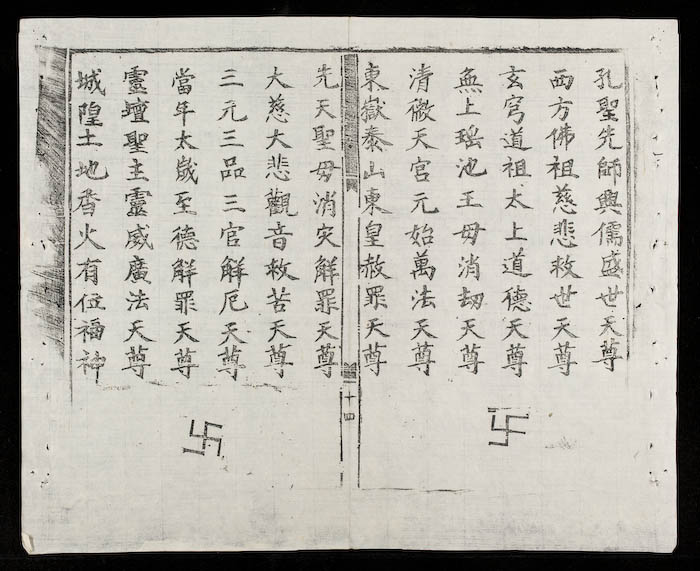 孔聖先師興儒盛世天尊
西方佛祖慈悲救世天尊
玄穹道祖太上道德天尊
無上瑶池王母消劫天尊
清微天宮元始萬法天尊
東嶽泰山東皇赦罪天尊
卍
十四
先天聖母消灾觧罪天尊
大慈大悲觀音救苦天尊
三元三品三官觧厄天尊
當年太歲至德觧罪天尊
靈壇聖主靈威廣法天尊
城隍土地香火有位福神
卍